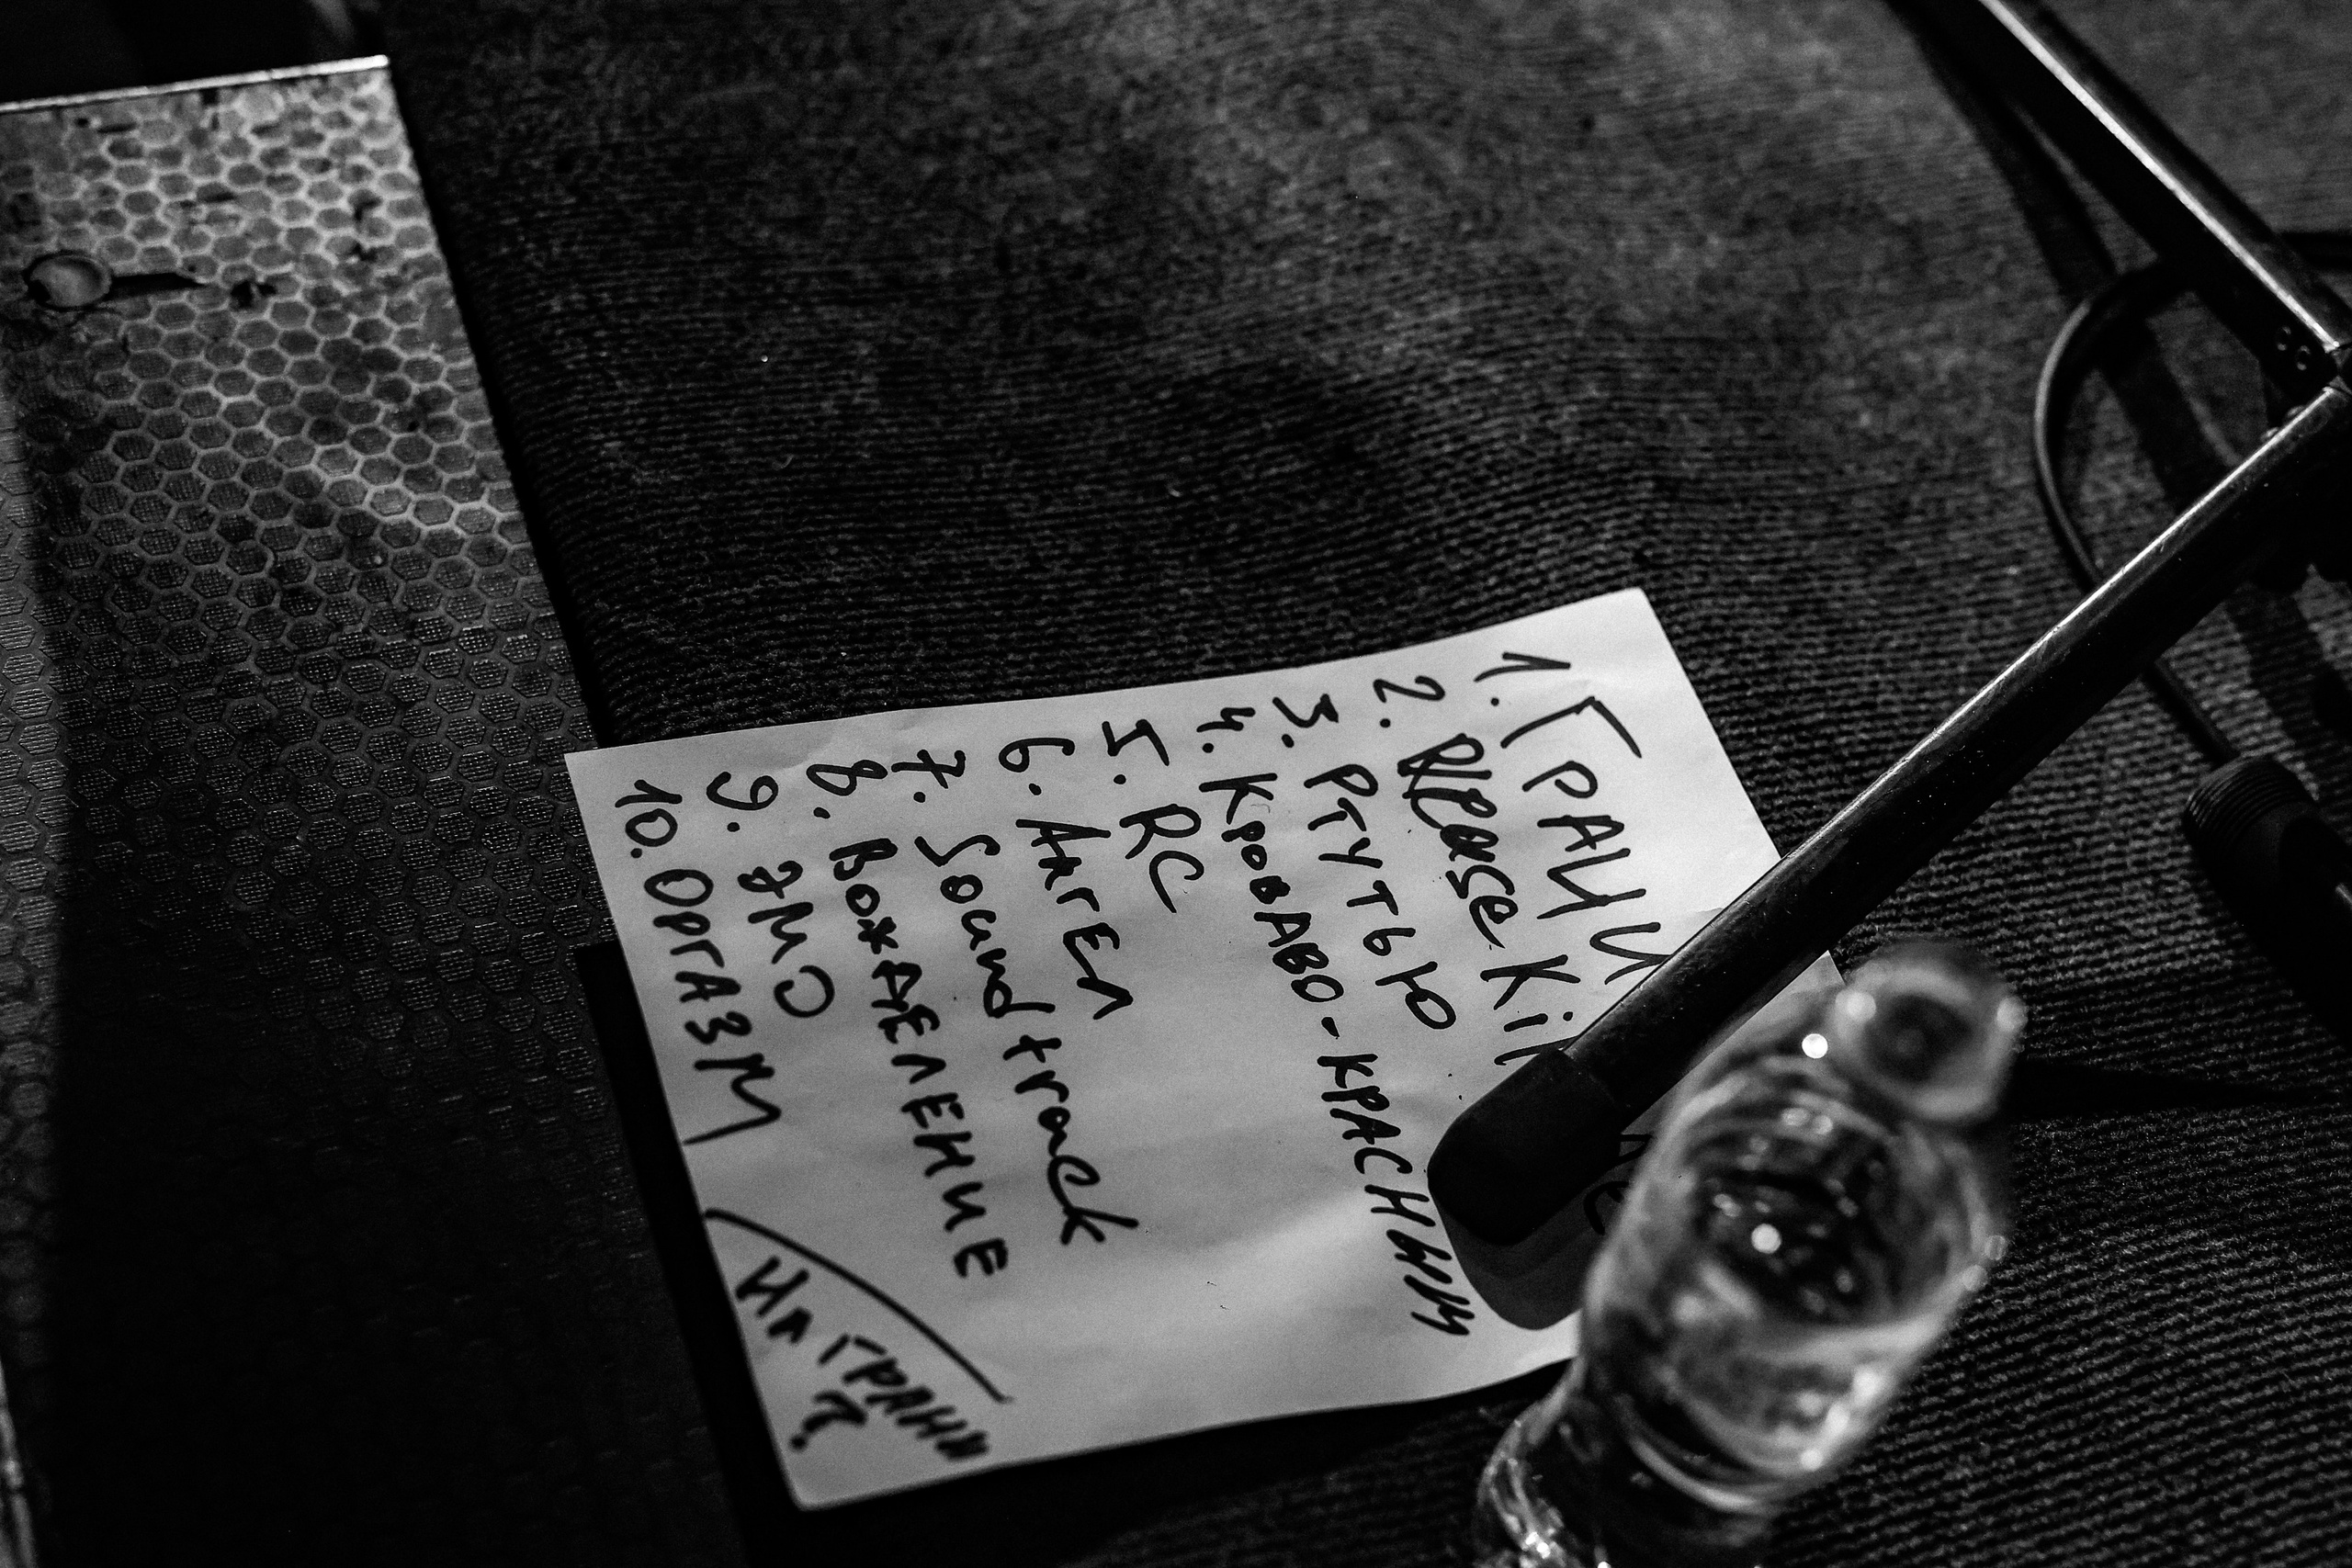 1. Грани
2. Please Kil
3. Ртутью
4. Кроваво-красным
5. RC
6. Ангел
7. Soundtrack
8. Вожделение
9. ЭМО
10. Оргазм
На грани
?